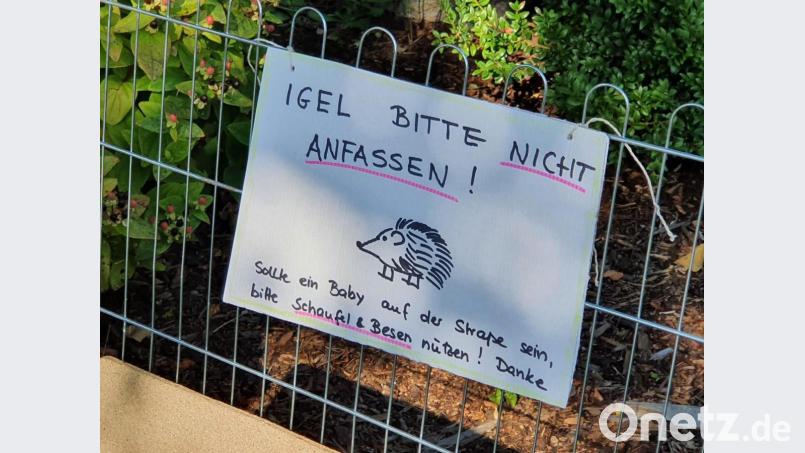 IGEL BITTE NICHT
ANFASSEN!
Sollte ein Baby auf der Straße sein,
bitte Schaufel & Besen nützen! Danke
Onetz.de